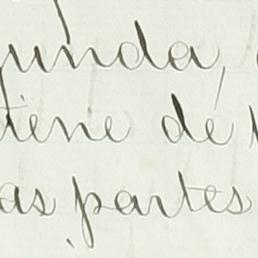 gunda,
tiene dé
as partes